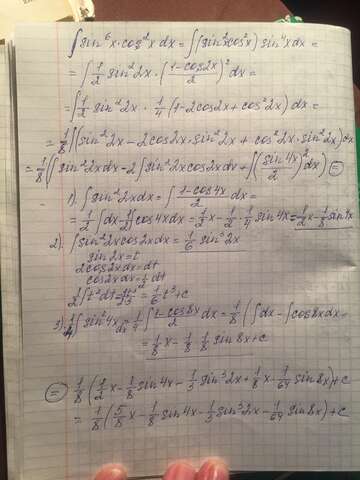 ∫sin⁶x·cos²x dx = ∫(sin²x cos²x) sin⁴x dx =
= ∫ 1/2 sin²2x · ∫(1-cos2x/2)² dx =
= ∫ 1/2 sin²2x · 1/4 (1-2cos2x+cos²2x) dx =
= 1/8 ∫(sin²2x - 2cos2x·sin²2x + cos²2x·sin²2x) dx
= 1/8 (∫sin²2x dx - 2∫sin²2x cos2x dx + ∫(sin4x/2)² dx) =
1). ∫sin²2x dx = ∫ 1-cos4x/2 dx =
= 1/2 ∫dx - 1/2 ∫cos4x dx = 1/2 x - 1/2 · 1/4 sin4x = 1/2 x - 1/8 sin4x
2). ∫sin²2x cos2x dx = 1/6 sin³2x
sin2x = t
2cos2x dx = dt
cos2x dx = 1/2 dt
1/2 ∫t²dt = 1/2 t³/3 = 1/6 t³ + c
3) 1/4 ∫sin²4x dx = 1/4 ∫ 1-cos8x/2 dx = 1/8 (∫dx - ∫cos8x dx =
= 1/8 x - 1/8 · 1/8 sin8x + c
= 1/8 (1/2 x - 1/8 sin4x - 1/3 sin³2x + 1/8 x - 1/64 sin8x) + c
= 1/8 (5/8 x - 1/8 sin4x - 1/3 sin³2x - 1/64 sin8x) + c